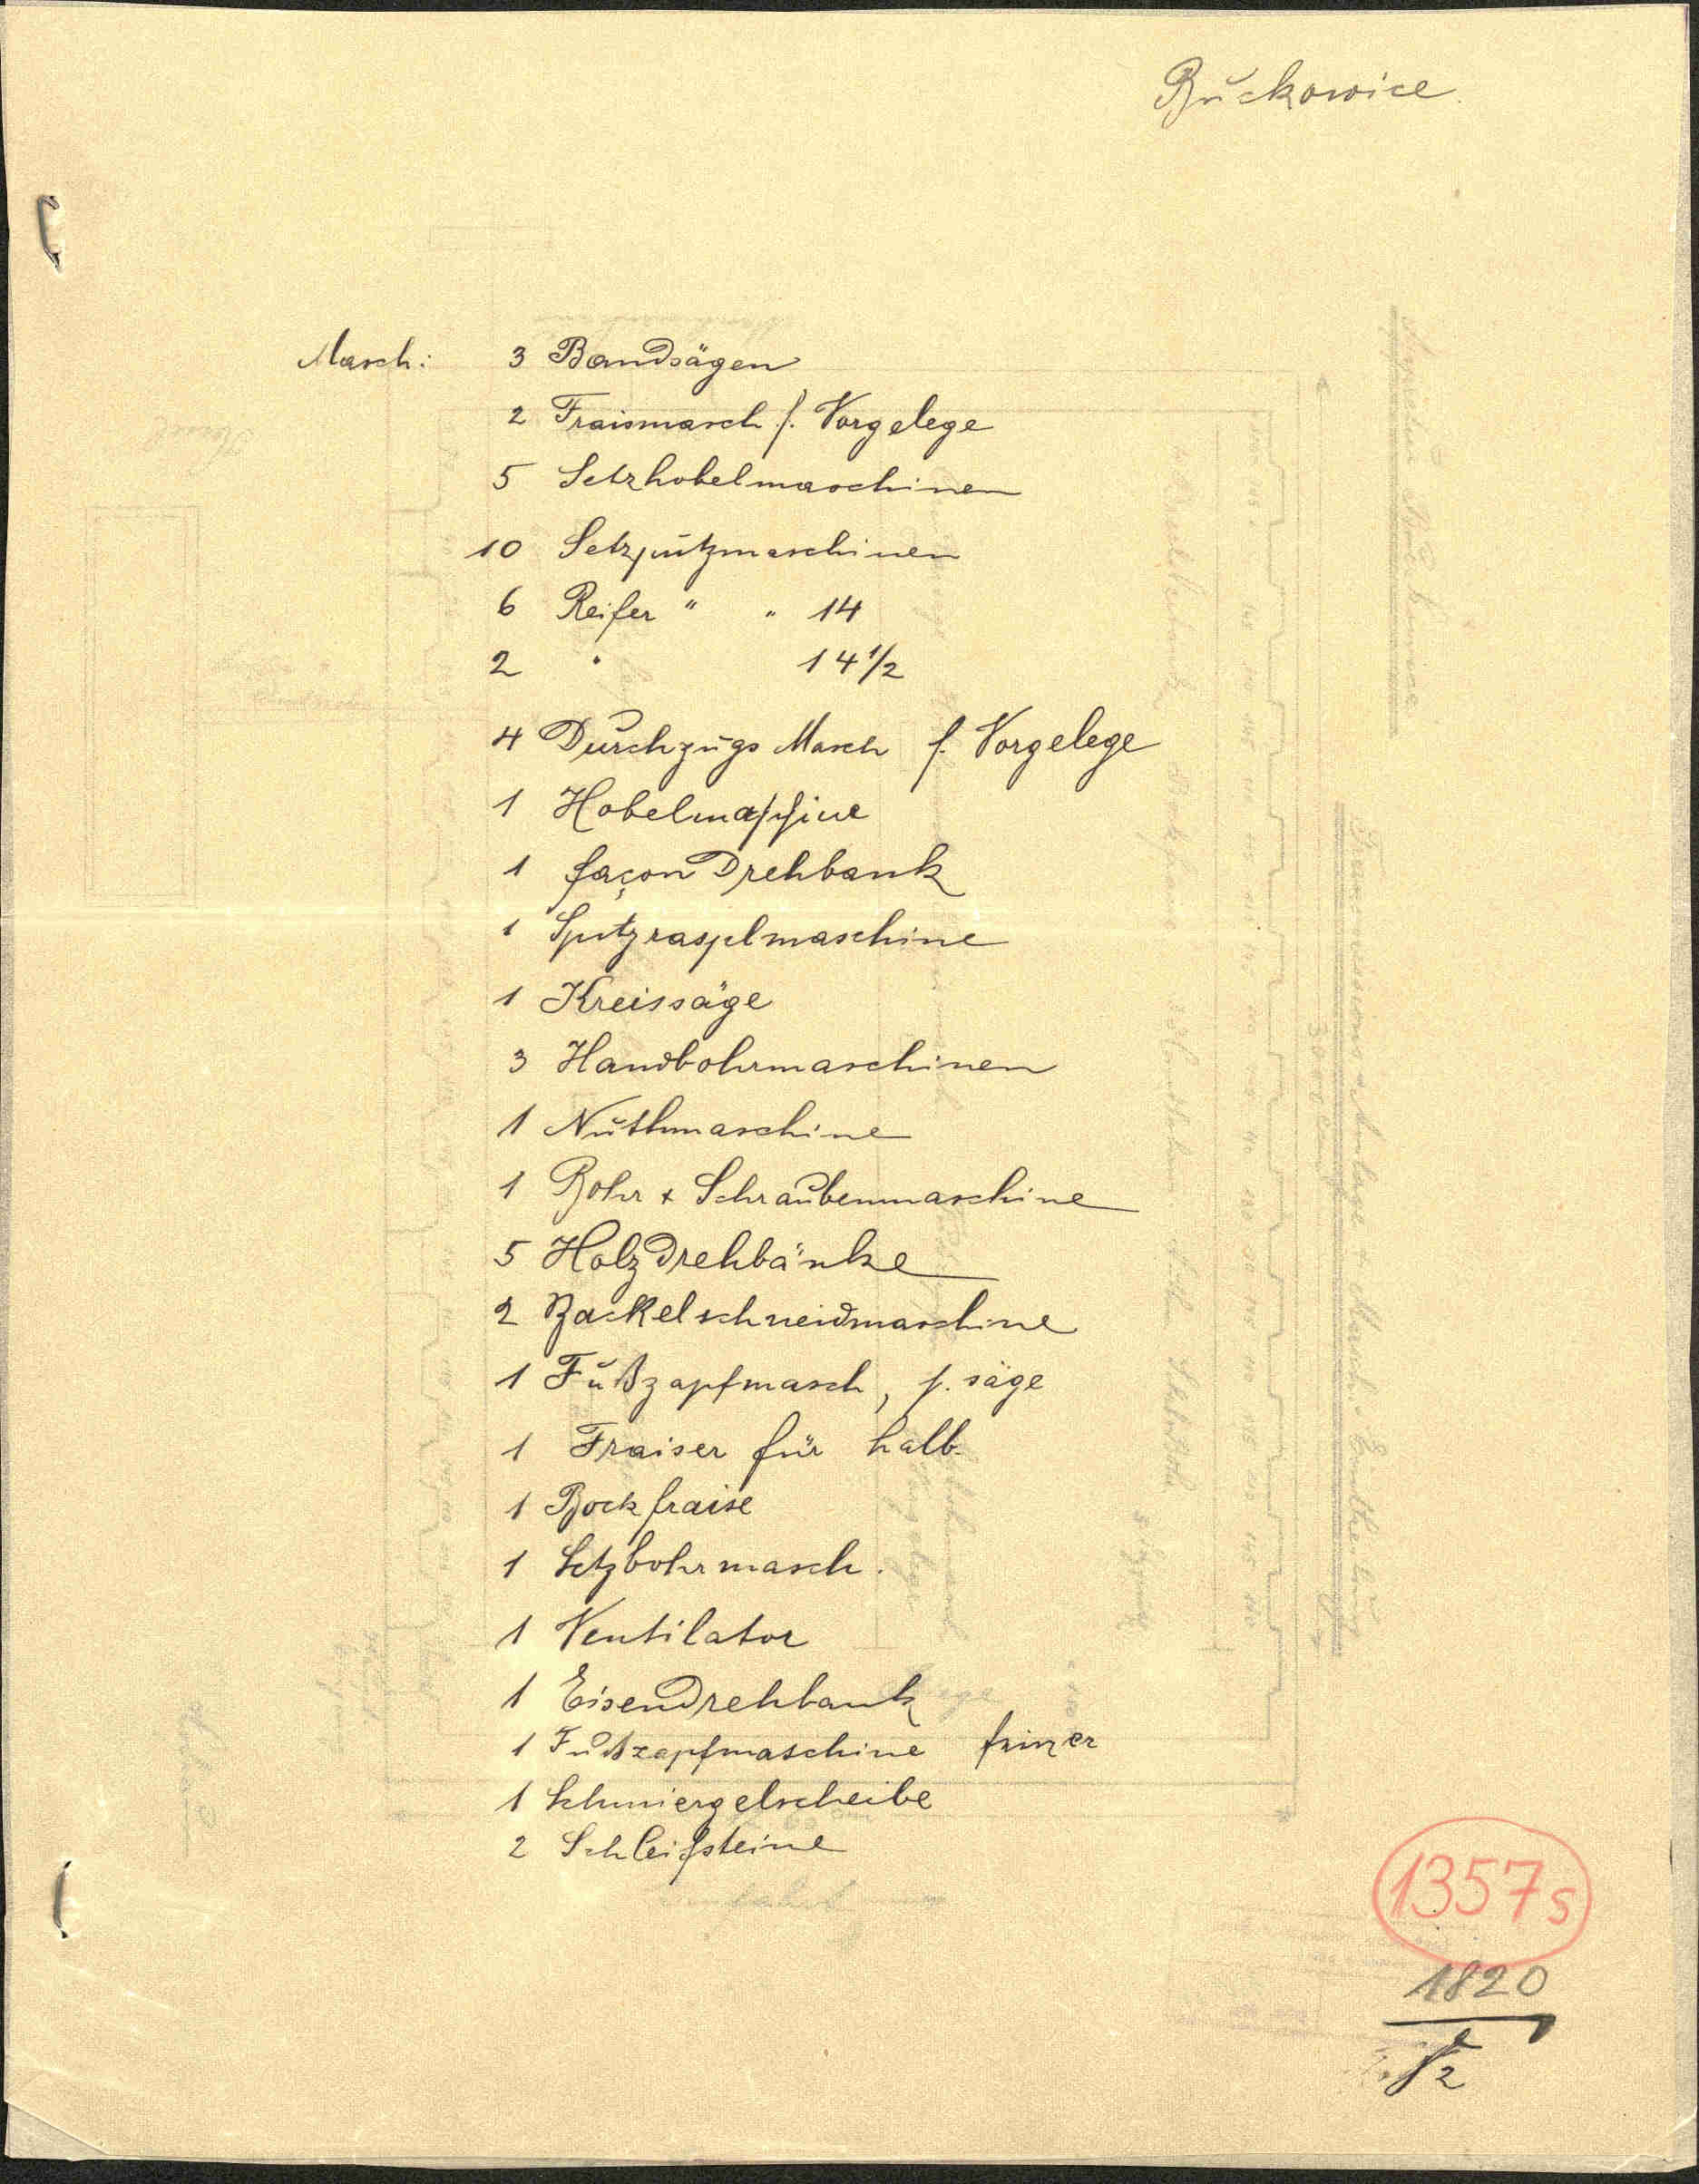 Buckowice
Masch: 3 Bandsägen
2 Fraismasch f. Vorgelege
5 Setzhobelmaschinen
10 Setzputzmaschinen
6 Reifer " " 14
2 " 14 1/2
4 Durchzugs Masch f. Vorgelege
1 Hobelmaschine
1 façon Drehbank
1 Spitzraspelmaschine
1 Kreissäge
3 Handbohrmaschinen
1 Nuthmaschine
1 Bohr + Schraubenmaschine
5 Holzdrehbänke
2 Backelschneidmaschine
1 Fußzapfmasch, f. säge
1 Fraiser für halb.
1 Bockfraise
1 Setzbohrmasch.
1 Ventilator
1 Eisendrehbank
1 Fußzapfmaschine
1 Schmiergelscheibe
2 Schleifsteine
1357s
1820